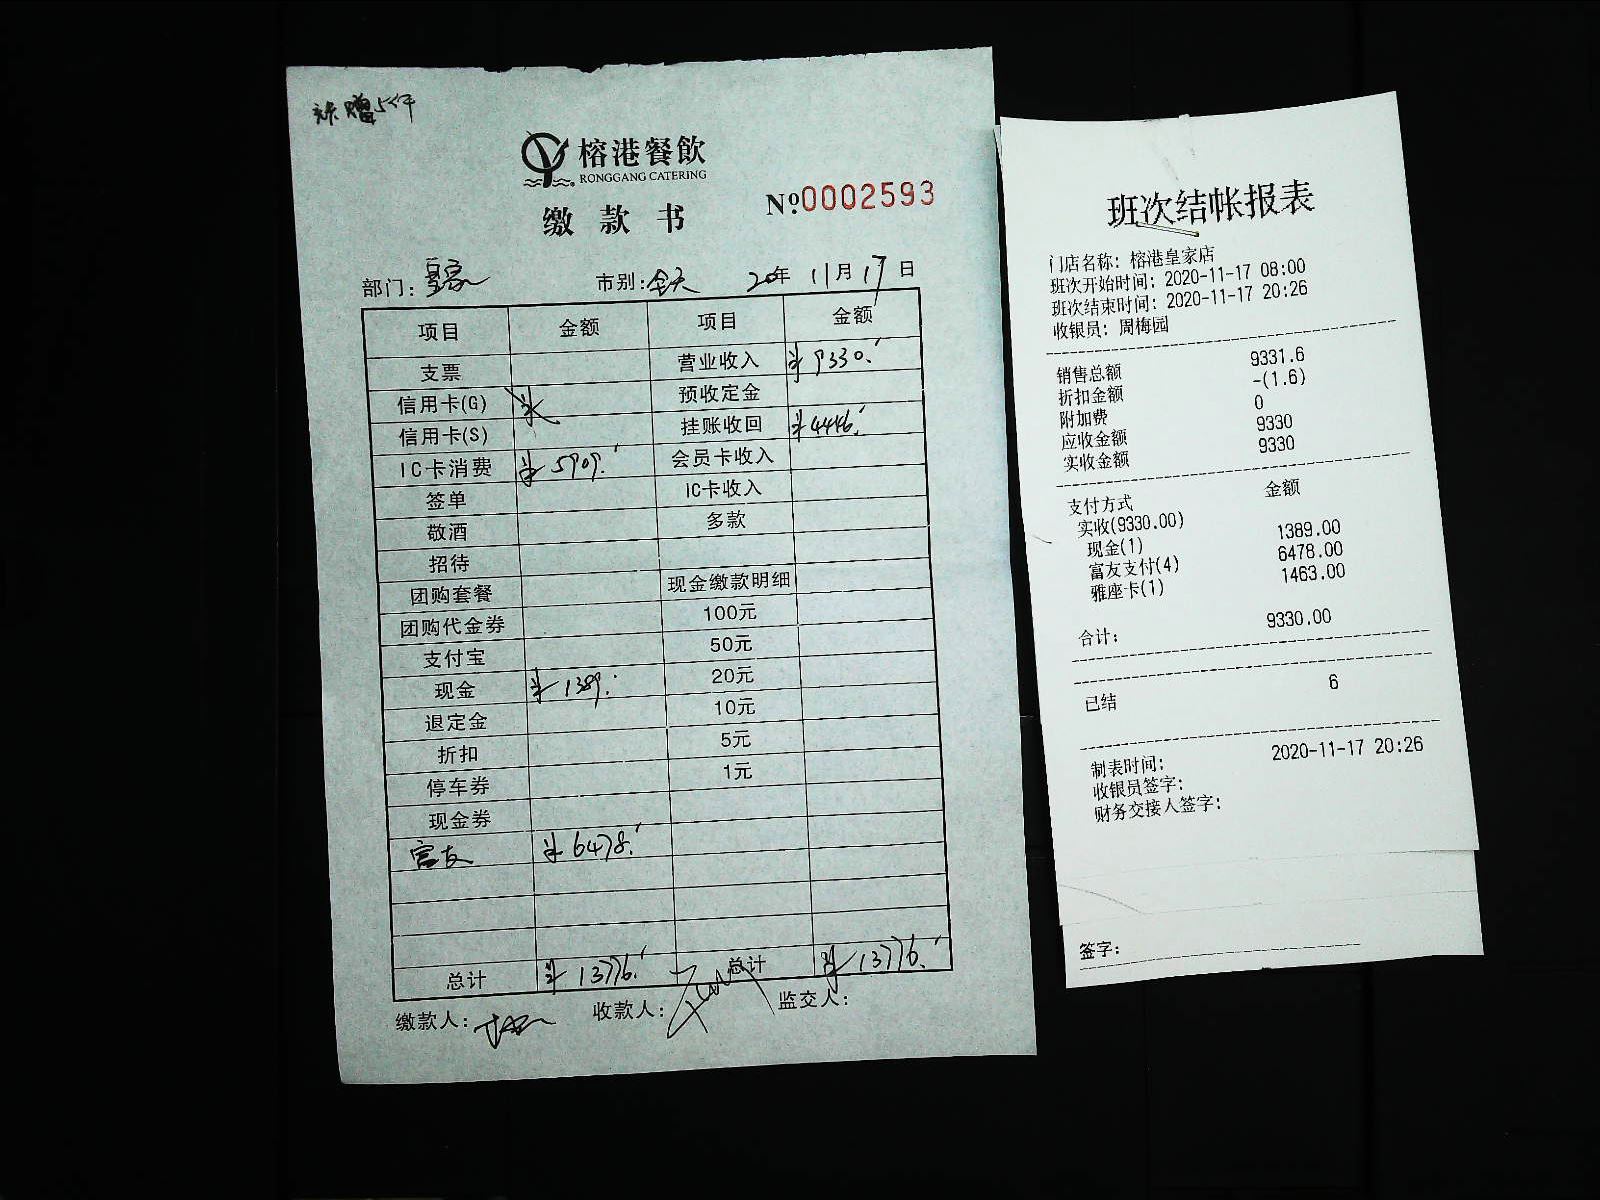 榕港餐飲
RONGGANG CATERING
缴款书
№0002593
部门: 皇家 市别: 全天 20年 11月 17日
项目 金额 项目 金额
支票 营业收入 ¥9330.-
信用卡(G) 预收定金
信用卡(S) 挂账收回 ¥4446.-
IC卡消费 ¥5909.- 会员卡收入
签单 IC卡收入
敬酒 多款
招待
团购套餐 现金缴款明细
团购代金券 100元
支付宝 50元
现金 ¥1389.- 20元
退定金 10元
折扣 5元
停车券 1元
现金券
富友 ¥6478.-
总计 ¥13776.- 总计 ¥13776.-
缴款人: 收款人: 监交人:
班次结帐报表
门店名称: 榕港皇家店
班次开始时间: 2020-11-17 08:00
班次结束时间: 2020-11-17 20:26
收银员: 周梅园
销售总额 9331.6
折扣金额 -(1.6)
附加费 0
应收金额 9330
实收金额 9330
支付方式 金额
实收(9330.00)
现金(1) 1389.00
富友支付(4) 6478.00
雅座卡(1) 1463.00
合计: 9330.00
已结 6
制表时间: 2020-11-17 20:26
收银员签字:
财务交接人签字:
签字: